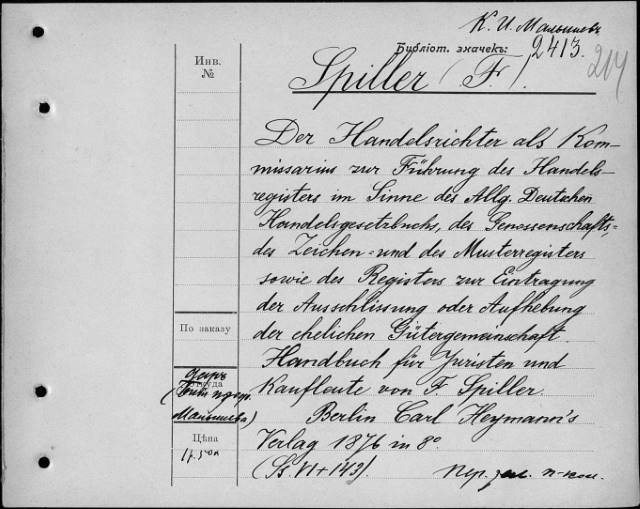 К. И. Малышевъ
Библіот. значекъ: 2413.
214
Инв.
№
Spiller (Fr.)
Der Handelsrichter als Kom-
missarius zur Führung des Handels-
registers im Sinne des Allg. Deutschen
Handelsgesetzbuchs, des Genossenschafts-,
des Zeichen- und des Musterregisters
sowie des Registers zur Eintragung
der Ausschlissung oder Aufhebung
der ehelichen Gütergemeinschaft.
Handbuch für Juristen und
Kaufleute von F. Spiller.
Berlin Carl Heymann's
Verlag 1876 in 8º
(Ss. VI + 149).
По заказу
Откуда
даръ
Малышева)
Цѣна